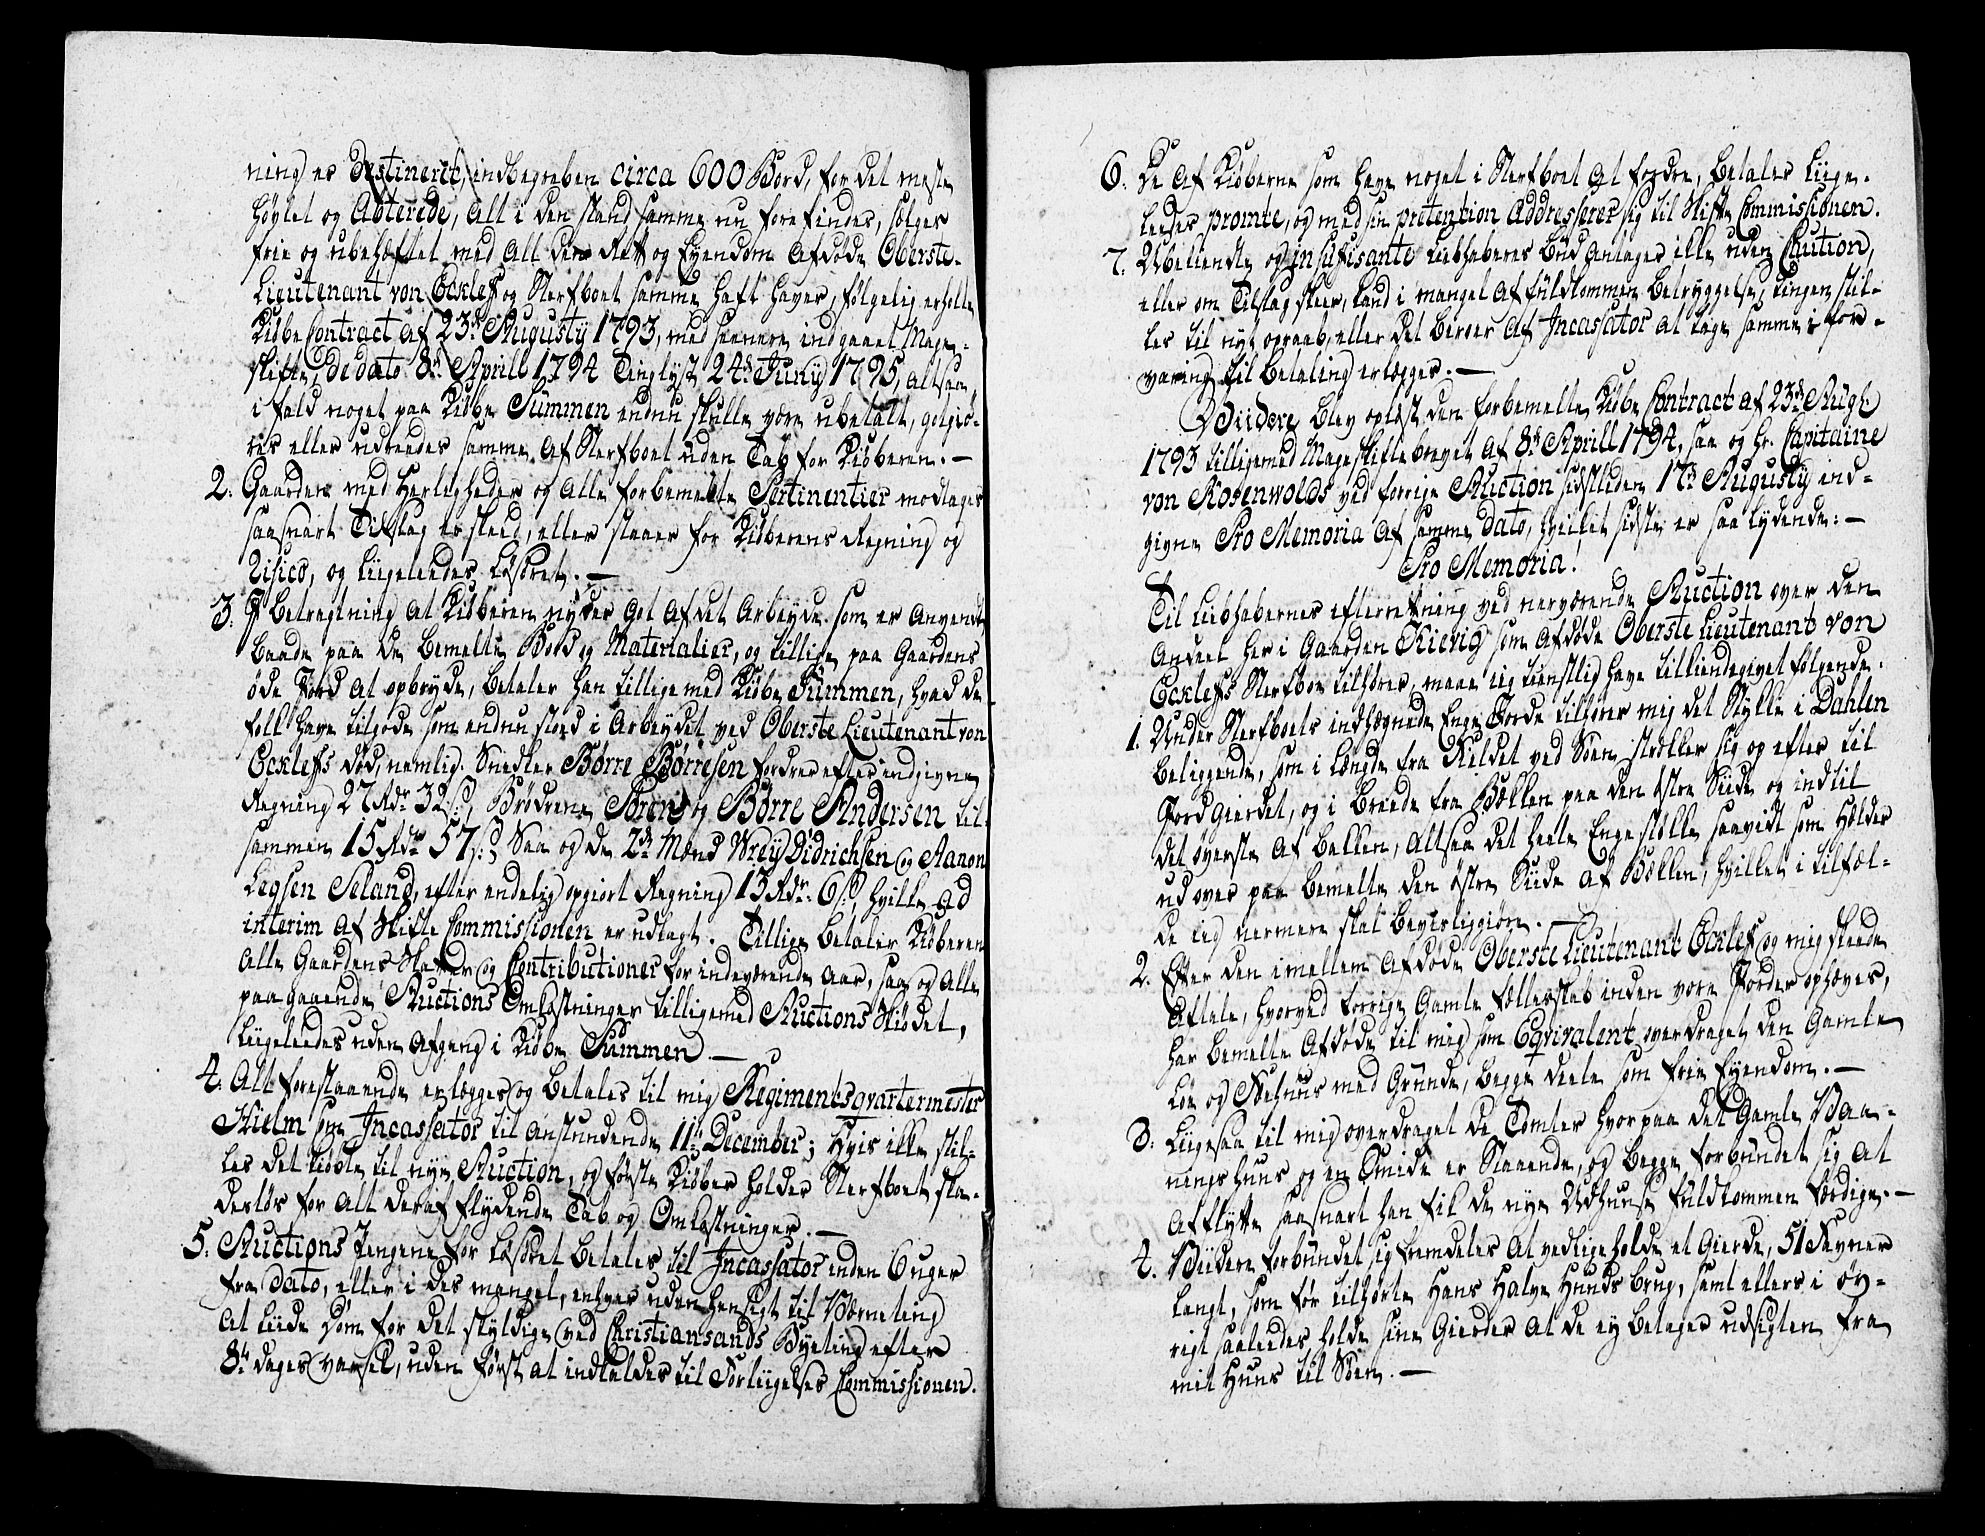 ning er Destineret, indbegreben circa 600 Bord, for det meste
høvlet og Abterede, alt i den stand samme nu forefindes, sælges
frie og ubehæftet med all den Rett og Eyendom afdøde Oberste-
Lieutenant von Eckleff og Sterfboet samme haft haver, følgelig erholte
Kiøbe Contract af 23de Augusty 1793, med seenere indgaaet Mage-
skifte, de dato 8de Aprill 1794 Tinglyst 24de Juny 1795, altsaa
i fald noget paa Kiøbe Summen endnu skulle være ubetalt, godgiø-
res eller udreedes samme af Sterfboet uden Tab for Kiøberen. —
2. Gaarden med Herligheder og alle forbemelte Pertinentier modtages
saasnart Tilslag er skeed, eller staaer for Kiøberens Regning og
Risico, og liigeleedes Løsøret. —
3. I betragtning at Kiøberen nyder got af det Arbeyde som er anvendt
baade paa de bemelte Bord og Materialier, og tillige paa Gaardens
øde Jord at opbryde, betaler han tillige med Kiøbe Summen, hvad de
folk have tilgode som endnu stoed i Arbeydet ved Oberste Lieutenant von
Eckleffs død, nemlig. Snedker Børre Børresen fordrer efter indgivne
Regning 27 Rdr 32 s., Brødrene Søren og Børre Andersen til-
sammen 15 Rdr 57 s. Saa og de 2de Mænd Wrey Didrichsen og Aanon
Legsen Seland, efter endelig opgiort Regning 13 Rdr. 6 s., hvilke ad
interim af Skifte Commissionen er udlagt. Tillige betaler Kiøberen
alle Gaardens Skatter og Contributioner for indeværende Aar, saa og alle
paagaaende Auctions Omkostninger tilligemed Auctions Skiødet,
liigeleedes uden Afgang i Kiøbe Summen. —
4. Alt forestaaende erlægges og betales til mig Regimentsqvartermester
Hielm som Incassator til anstundende 11te December; Hvis ikke stil-
les det kiøbte til nye Auction, og første Kiøber holder Sterfboet ska-
desløs for alt deraf flydende Tab og Omkostninger. —
5. Auctions Pengene for Løsøret betales til Incassator inden 6 uger
fra Dato, eller i des mangel, enhver uden hensigt til Værneting
at liide Dom for det skyldige ved Christiansands Byeting efter
8te dages varsel, uden først at indkaldes til Forliigelses Commissionen.
6. De af Kiøberne som have noget i Sterfboet at fordre, betaler liige-
leedes promte, og med sin prætention Addresserer sig til Skifte Commissionen.
7. Ubekiendte og insufisante Liebhaberes Bud antages ikke uden Caution,
eller om Tilslag skeer, kand i mangel af fuldkommen betryggelse, tingen stil-
les til nyt opraab, eller det beroer af Incassator at tage samme i for-
varing til betaling erlægges. —
Viidere blev oplæst den forbemelte Kiøbe Contract af 23de Augt
1793 tilligemed Mageskifte brevet af 8de Aprill 1794, saa og hr. Capitaine
von Rosenwolds ved forrige Auction sidstleden 17de Augusty ind-
givne Pro Memoria af samme Dato, hvilket sidste er saa lydende: —
Pro Memoria.
Til Liebhabernes efterretning ved nærværende Auction over den
andeel her i Gaarden Kievig som afdøde Oberste Lieutenant von
Eckleffs Sterfboe tilhører, maae ieg tienstlig have tilkiendegivet følgende.
1. Under Sterfboets indhægnede Enge Jorde tilhører mig det Stykke i Dahlen
beliggende, som i Længde fra Skeldet ved Søen strækker sig op efter til
Jordgierdet, og i Breede fra Bækken paa den østre Siide og indtil
det øverste af bakken, altsaa det heele Enge stykke saavidt som Helder
ud over paa bemelte den østre Siide af Bækken, hvilket i tilfæl-
de ieg nærmere skal bevirliggiøre. —
2. Efter den imellem afdøde Oberste Lieutenant Eckleff og mig skeede
aftale, hvorved forrige gamle fællesskab inden vore Jorder ophæves,
har bemelte Afdøde til mig som Eqvivalent overdraget den gamle
Løe og Fæhuus med Grunde, begge deele som frie Eyendom. —
3. Liigesaa til mig overdraget de Tomter hvorpaa det gamle Vaa-
ningshuus og en Smide er staaende, og begge forbundet sig at
afflytte saasnart han fik de nye Udhuuse fuldkommen færdige. —
4. Viidere forbundet sig fremdeles at vedligeholde et Gierde, 51 Favner
langt, som før tilhørte Hans halve Hunds brug, samt ellers i øv-
rigt saaleedes holde sine Gierder at de ey betager udsigten fra
mit Huus til Søen. —